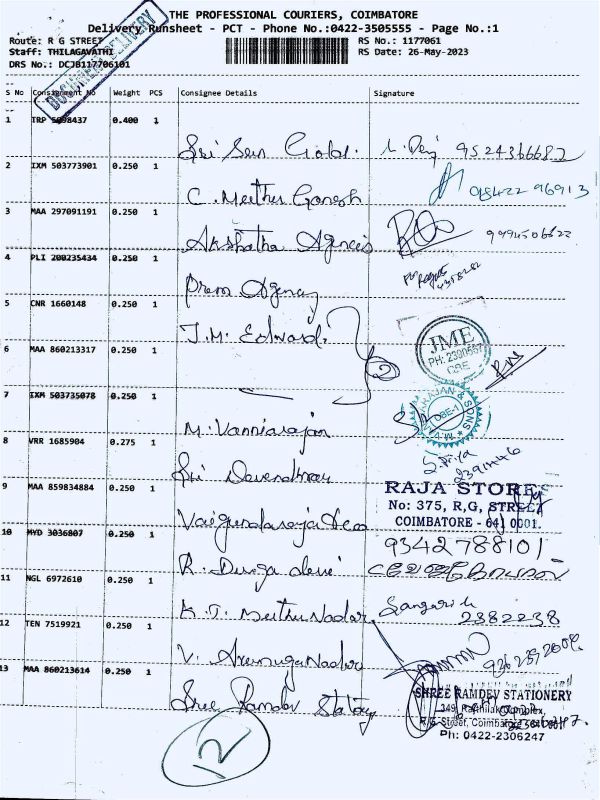 THE PROFESSIONAL COURIERS, COIMBATORE
Delivery Runsheet - PCT - Phone No.:0422-3505555 - Page No.:1
Route: R G STREET
RS No.: 1177061
Staff: THILAGAVATHI
RS Date: 26-May-2023
DRS No.: DCJB117706101
DOCUMENT DELIVERY
S No Consignment No Weight PCS Consignee Details Signature
1 TRP 5098437 0.400 1
Sri Sen Gold. 9524366682
2 IXM 503773901 0.250 1
C. Meethu Ganesh 98422 96913
3 MAA 297091191 0.250 1
Akshatha Agencies
4 PLI 200235434 0.250 1
Prem Agency
5 CNR 1660148 0.250 1
J.M. Edward.
JME
PH: 2300567
CBE
6 MAA 860213317 0.250 1
2
7 IXM 503735078 0.250 1
M. Vanniarajan
8 VRR 1685904 0.275 1
Sri Devendhran
S. Priya
2391446
9 MAA 859834884 0.250 1
RAJA STORES
No: 375, R,G, STREET
COIMBATORE - 641 0001.
Vaigundaraja
10 MYD 3036807 0.250 1
9342788101
R. Durga devi
11 NGL 6972610 0.250 1
K. T. Meethu Nadar Sangavi k
2382238
12 TEN 7519921 0.250 1
V. Arumuga Nadar
13 MAA 860213614 0.250 1
Sree Ramdev Statory
SHREE RAMDEV STATIONERY
349, Rajthilak Complex,
R.G. Street, Coimbatore - 641 001
Ph: 0422-2306247
12